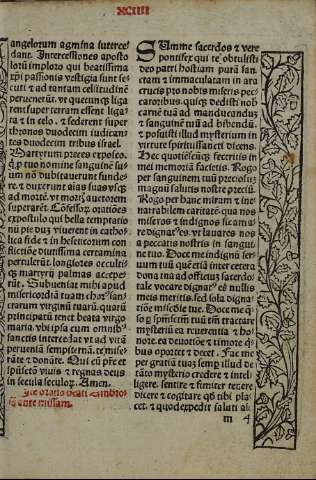 XCIIII
angelorum agmina intercedant. Intercessiones aposto
lorũ imploro qui beatissima
xp̃i passionis vestigia sunt secuti
ti ad tantam celsitudinẽ
peruenerũt. vt quecunq̃ liga
uerit super terram essent liga
ta in celo. & sederent super
thronos duodecim iudican
tes duodecim tribus israel.
Martyrum preces exposco.
q̃ p tuo nomine sanguinẽ su
um nõ dubitauerunt funde
re. & duxerunt aias suas vsq̃
ad mortẽ. vt mortẽ auctorem
superarẽt. Cõfessoꝝ orationes
expostulo qui bella temptatio
nũ pie duxerunt in catho
lica fide & in hereticorum con
fictiõe diutissima certamina
pertulerũt. vt
q̃ martyrũ palmas accepe
rũt. Subueniat mihi apud
misericordiã tuam choꝝ san
ctarum virginũ tuarũ. quarũ
principatũ tenet beata virgo
maria. vbi ipsa cum omnibꝰ
sanctis intercedat vt ad vitã
perueniã sempiternã. te mise
rante & donante. Qui cũ pr̃e et
spũsctõ viuis & regnas deus
in secula seculoꝝ. Amen.
oratio beati Ambrosi
ante missam.
Summe sacerdos & vere
pontifex qui te obtulisti
deo patri hostiam purã san
ctam & immaculatam in ara
crucis pro nobis miseris pec
catoribus. quicq̃ dedisti nob
carnẽ tuã ad manducandũ
& sanguinẽ tuũ ad bibendũ.
& posuisti illud mysterium in
virtute spiritussancti dicens.
Hec quotiescũq̃ feceritis in
mei memoriã facietis. Rogo
per sanguinem tuũ preciosũ
magnũ salutis nostre preciũ.
Rogo per hanc miram & ine
narrabilem caritatẽ. qua nos
miseros & indignos sic ama
re dignatꝰ es. vt lauares nos
a peccatis nostris in sangui
ne tuo. Doce me indignũ ser
uum tuũ quẽ inter cetera
dona tua ad officiuz sacerdo
tale vocare dignatꝰ es nullis
meis meritis. sed sola digna
tiõe misericordie tue. Doce me q̃so
p spm̃sanctũ tuũ tm̃ tractare
mysteriũ ea reuerentia & ho
nore. ea deuotiõe & timore q̃
bus oportet & decet. Fac me
per gratiã tuaz semp illud de
tãto mysterio credere & intelli
gere. sentire & firmiter tenere
dicere & cogitare qd tibi pla
cet. & quod expedit saluti aĩe
m 4